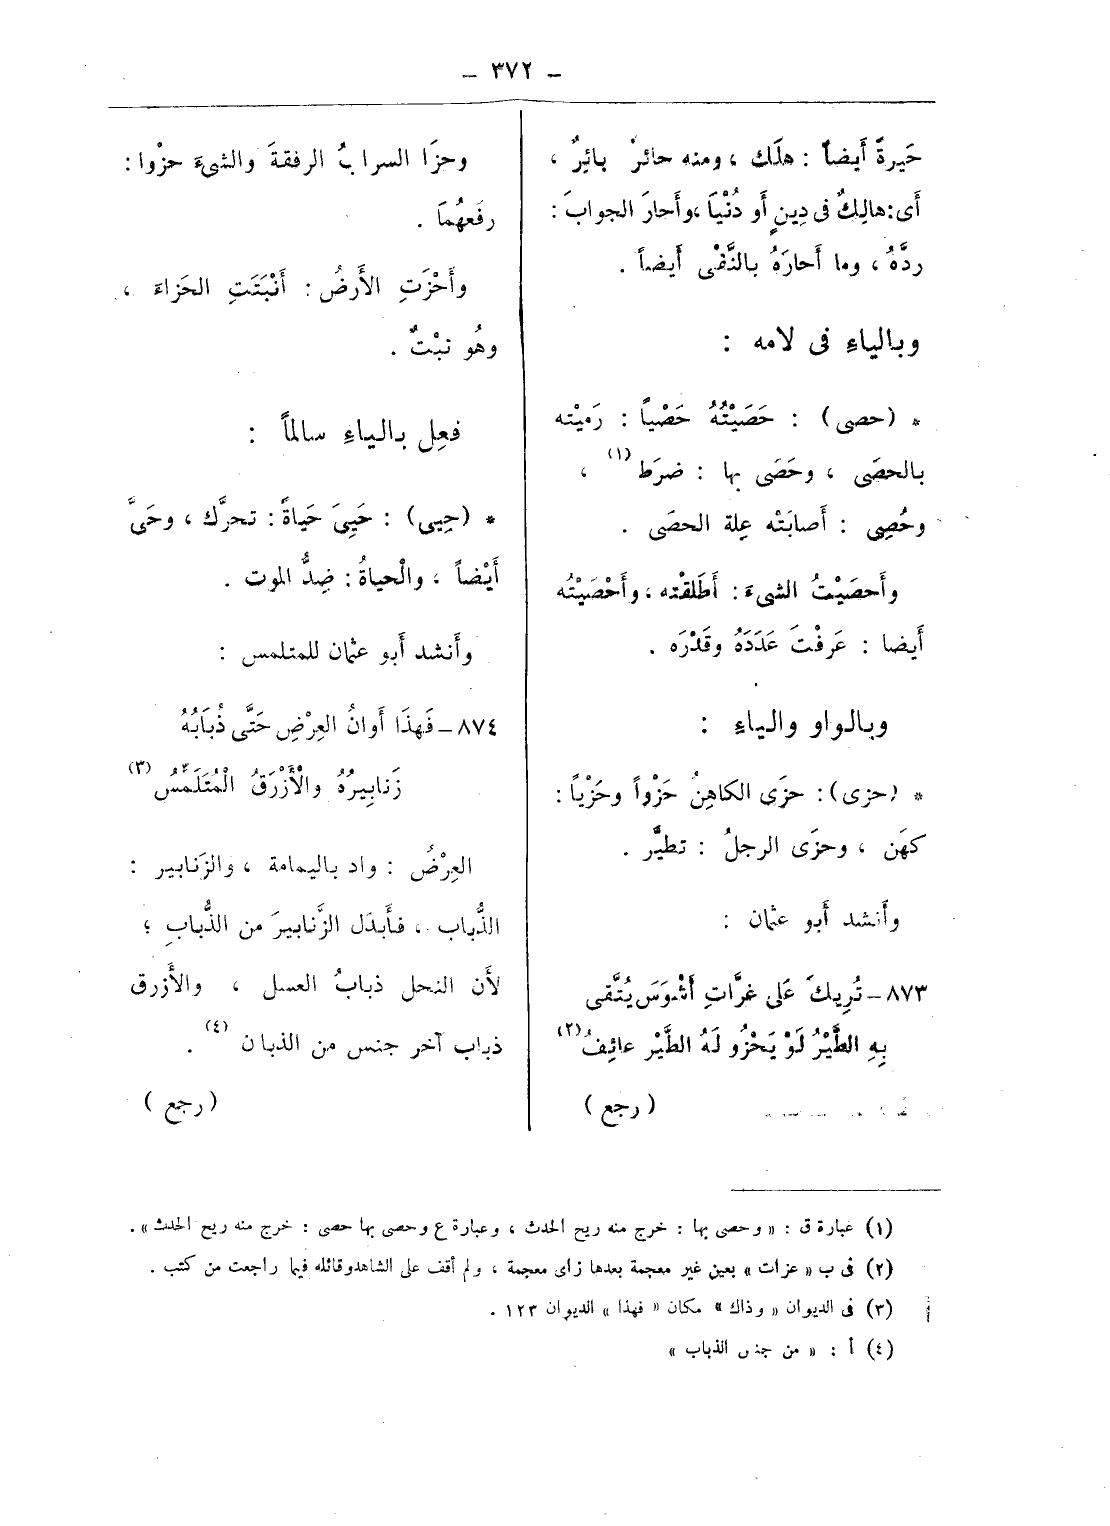 – ٣٧٢ –
حَيرةً أَيضاً : هلَك ، ومنه حائرٌ بائِرٌ ،
أَى : هالِكٌ فى دِينٍ أَو دُنْيَا ، وأَحارَ الجوابَ :
ردَّهُ ، وما أَحارَهُ بالنَّفْى أَيضاً .
وبالياءِ فى لامه :
* (حصى) : حَصَيْتُهُ حَصْياً : رَميْته
بالحصَى ، وحَصَى بها : ضرَط (١) ،
وحُصِى : أَصابَتْه عِلة الحصَى .
وأَحصَيْتُ الشىءَ : أَطَلقْته ، وأَحْصَيْتُه
أَيضا : عَرفْتَ عَدَدَهُ وقَدْرَه .
وبالواو والياءِ :
* (حزى) : حزَى الكاهِنُ حَزْواً وحَزْياً :
كهَن ، وحزَى الرجلُ : تطيَّر .
وأَنشد أَبو عثمان :
٨٧٣ – تُرِيكَ عَلَى غرَّاتِ أَشْوَسَ يُتَّقى
بِهِ الطَّيْرُ لَوْ يَحْزُو لَهُ الطَّيْر عائِفُ (٢)
( رجع )
وحزَا السرابُ الرفقةَ والشىءَ حزْوا :
رفَعهُمَا .
وأَحْزَتِ الأَرضُ : أَنْبَتَتِ الحَزاءَ ،
وهُو نبْتٌ .
فعِل بالياءِ سالماً :
* (حيِى) : حَيِىَ حَياةً : تحرَّك ، وحَىَّ
أَيْضاً ، والْحياةُ : ضِدُّ الموت .
وأَنشد أَبو عثمان للمتلمس :
٨٧٤ – فَهذَا أَوانُ العِرْضِ حَتَّى ذُبَابُهُ
زَنابِيرُهُ والْأَزْرَقُ الْمُتَلَمِّسُ (٣)
العِرْضُ : واد باليمامة ، والزَنابير :
الذُّباب ، فأَبدَل الزَّنابيرَ من الذُّبابِ ؛
لأَن النحل ذبابُ العسل ، والأَزرق
ذباب آخر جنس من الذبان (٤) .
( رجع )
(١) عبارة ق : « وحصى بها : خرج منه ريح الحدث ، وعبارة ع وحصى بها حصى : خرج منه ريح الحدث » .
(٢) فى ب « عزات » بعين غير معجمة بعدها زاى معجمة ، ولم أقف على الشاهد وقائله فيما راجعت من كتب .
(٣) فى الديوان « وذاك » مكان « فهذا » الديوان ١٢٣ .
(٤) أ : « من جنس الذباب »